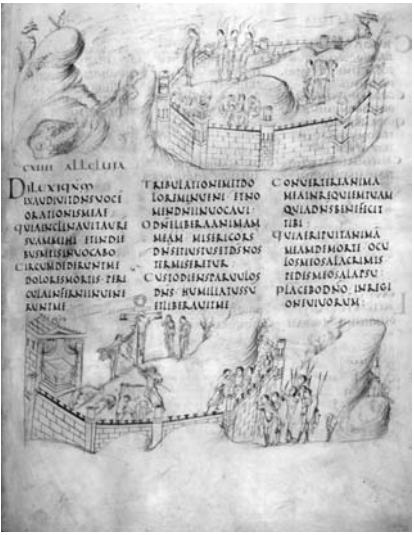 CXIIII ALLELUIA
DILEXI QNM
EXAUDIUIT DNS UOCE
ORATIONIS MEAE
QUIA INCLINAUIT AURE
SUAM MIHI ET IN DIE
BUS MEIS INUOCABO
CIRCUMDEDERUNT ME
DOLORES MORTIS PERI
CULA INFERNI INUENE
RUNT ME
TRIBULATIONEM ET DO
LOREM INUENI ET NO
MEN DNI INUOCAUI
O DNE LIBERA ANIMAM
MEAM MISERICORS
DNS ET IUSTUS ET DS NOS
TER MISERETUR
CUSTODIENS PARUULOS
DNS HUMILIATUS SU
ET LIBERAUIT ME
CONUERTERE ANIMA
MEA IN REQUIEM TUAM
QUIA DNS BENIFICET
TIBI
QUIA ERIPUIT ANIMA
MEAM DE MORTE OCU
LOS MEOS A LACRIMIS
PEDES MEOS A LAPSU
PLACEBO DNO IN REGI
ONE UIUORUM